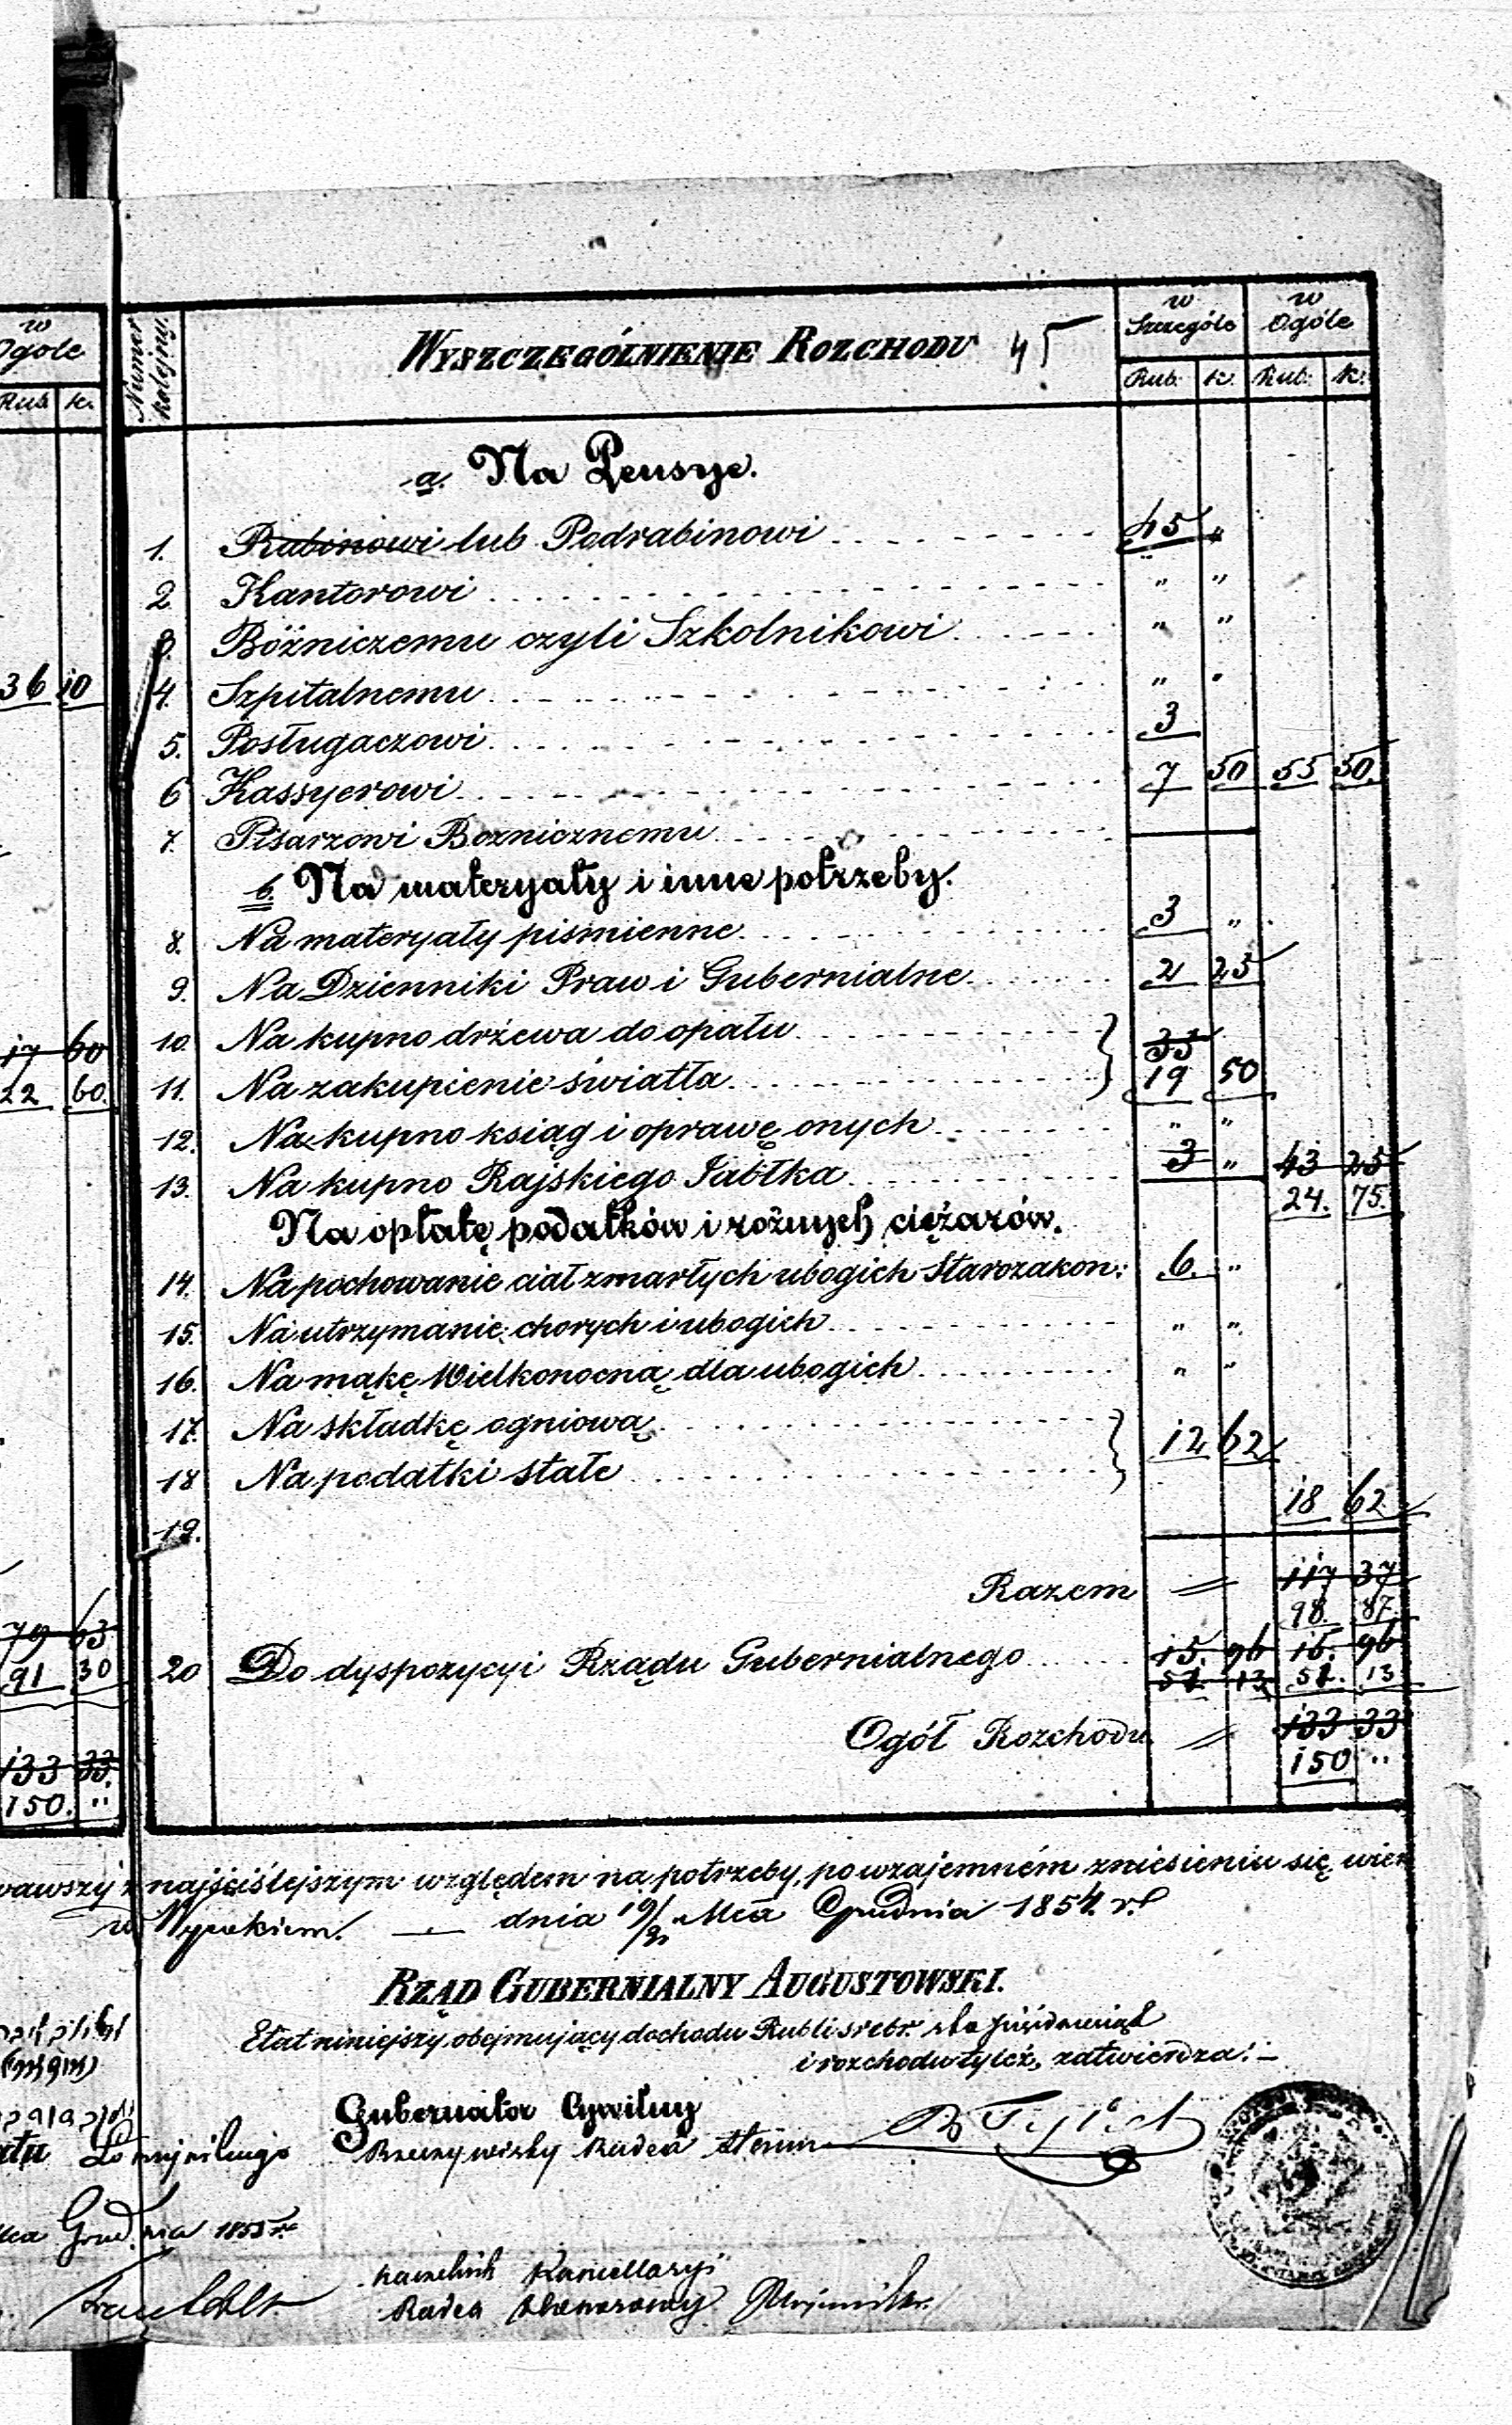 w Ogóle
Rub. k.
36 10
17 60
22 60.
79 63
91 30
133 33.
150. "
Numer kolejny.
WYSZCZEGÓLNIENIE ROZCHODU 45
w Szczególe
w Ogóle
Rub. k. Rub. k.
a. Na Pensye.
1. Rabinowi lub Podrabinowi 45 "
2 Kantorowi " "
3. Bóżniczemu czyli Szkolnikowi " "
4. Szpitalnemu " "
5. Posługaczowi 3
6 Kassyerowi 7 50 55 50.
7. Pisarzowi Boznicznemu
b. Na materyały i inne potrzeby.
8. Na materyały piśmienne 3 "
9. Na Dzienniki Praw i Gubernialne 2 25
10. Na kupno drzewa do opału } 35
11. Na zakupienie światła 19 50
12. Na kupno ksiąg i oprawę onych " "
13. Na kupno Rajskiego Jabłka 3 " 43 25
24. 75.
Na opłatę podatków i rożnych ciężarów.
14. Na pochowanie ciał zmarłych ubogich Starozakon: 6. "
15. Na utrzymanie chorych i ubogich " "
16. Na mąkę Wielkonocną dla ubogich " "
17. Na składkę ogniową } 12 62
18 Na podatki stałe
18 62
19.
Razem 117 37
98. 87
20 Do dyspozycyi Rządu Gubernialnego 15. 96 15. 96
51. 13 51. 13
Ogół Rozchodu 133 33
150 "
wawszy z najściślejszym względem na potrzeby, po wzajemném zniesieniu się wier
w Wysokiem. dnia 19/ Mca Grudnia 1854. r.
RZĄD GUBERNIALNY AUGUSTOWSKI.
Etat niniejszy obejmujący dochodu Rubli srebr. sto pięćdziesiąt
i rozchodu tyleż, zatwierdza:
Gubernator Cywilny
Rzeczywisty Radca Stanu
Łomżyńskiego
Grudnia 1855 r.
Naczelnik Kancellaryi
Radca